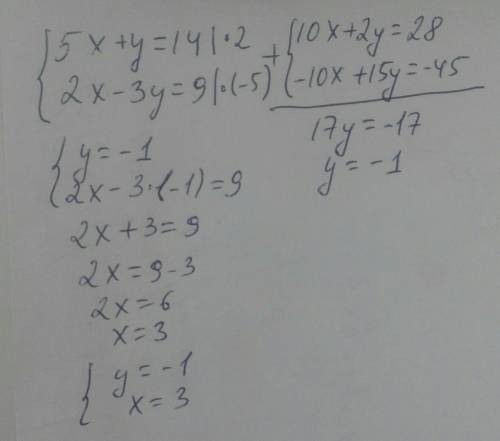 5x+y=14|·2
2x-3y=9|·(-5)
+
10x+2y=28
-10x+15y=-45
17y=-17
y=-1
y=-1
2x-3·(-1)=9
2x+3=9
2x=9-3
2x=6
x=3
y=-1
x=3